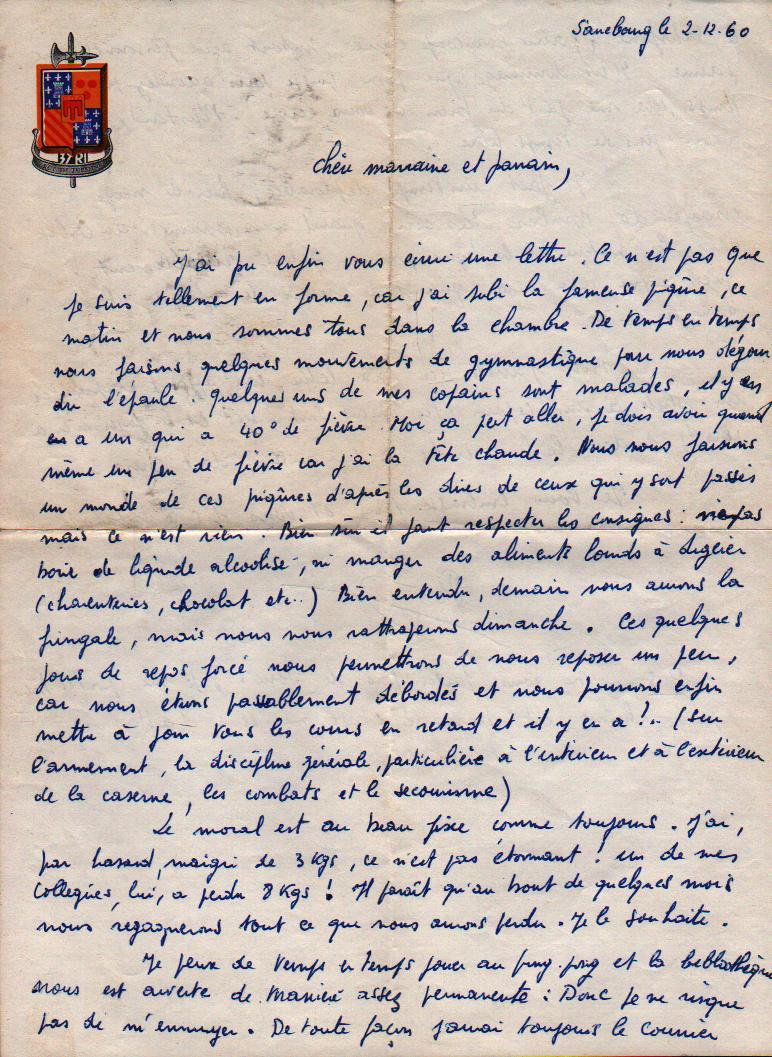 Sarrebourg le 2-12-60
37 RI
Chère marraine et parrain,
J'ai pu enfin vous écrire une lettre. Ce n'est pas que
je suis tellement en forme, car j'ai subi la fameuse piqûre, ce
matin et nous sommes tous dans la chambre. De temps en temps
nous faisons quelques mouvements de gymnastique pour nous dégour
dir l'épaule. Quelques uns de mes copains sont malades, il y en
a un qui a 40° de fièvre. Moi ça peut aller, je dois avoir quand
même un peu de fièvre car j'ai la tête chaude. Nous nous faisions
un monde de ces piqûres d'après les dires de ceux qui y sont passés
mais ce n'est rien. Bien sûr il faut respecter les consignes :
boire de liquide alcoolisé, ni manger des aliments lourds à digérer
(charcuteries, chocolat etc..) Bien entendu, demain nous aurons la
fringale, mais nous nous rattraperons dimanche. Ces quelques
jours de repos forcé nous permettrons de nous reposer un peu,
car nous étions passablement débordés et nous pourrons enfin
mettre à jour tous les cours en retard et il y en a !.. (sur
l'armement, la discipline générale, particulière à l'intérieur et à l'extérieur
de la caserne, les combats et le secourisme)
Le moral est au beau fixe comme toujours. J'ai,
par hasard, maigri de 3 Kgs, ce n'est pas étonnant ! un de mes
collègues, lui, a perdu 8 Kgs ! Il paraît qu'au bout de quelques mois
nous regagnerons tout ce que nous aurons perdu. Je le souhaite.
Je peux de temps en temps jouer au ping-pong et la bibliothèque
nous est ouverte de manière assez permanente : Donc je ne risque
pas de m'ennuyer. De toute façon j'aurai toujours le courrier